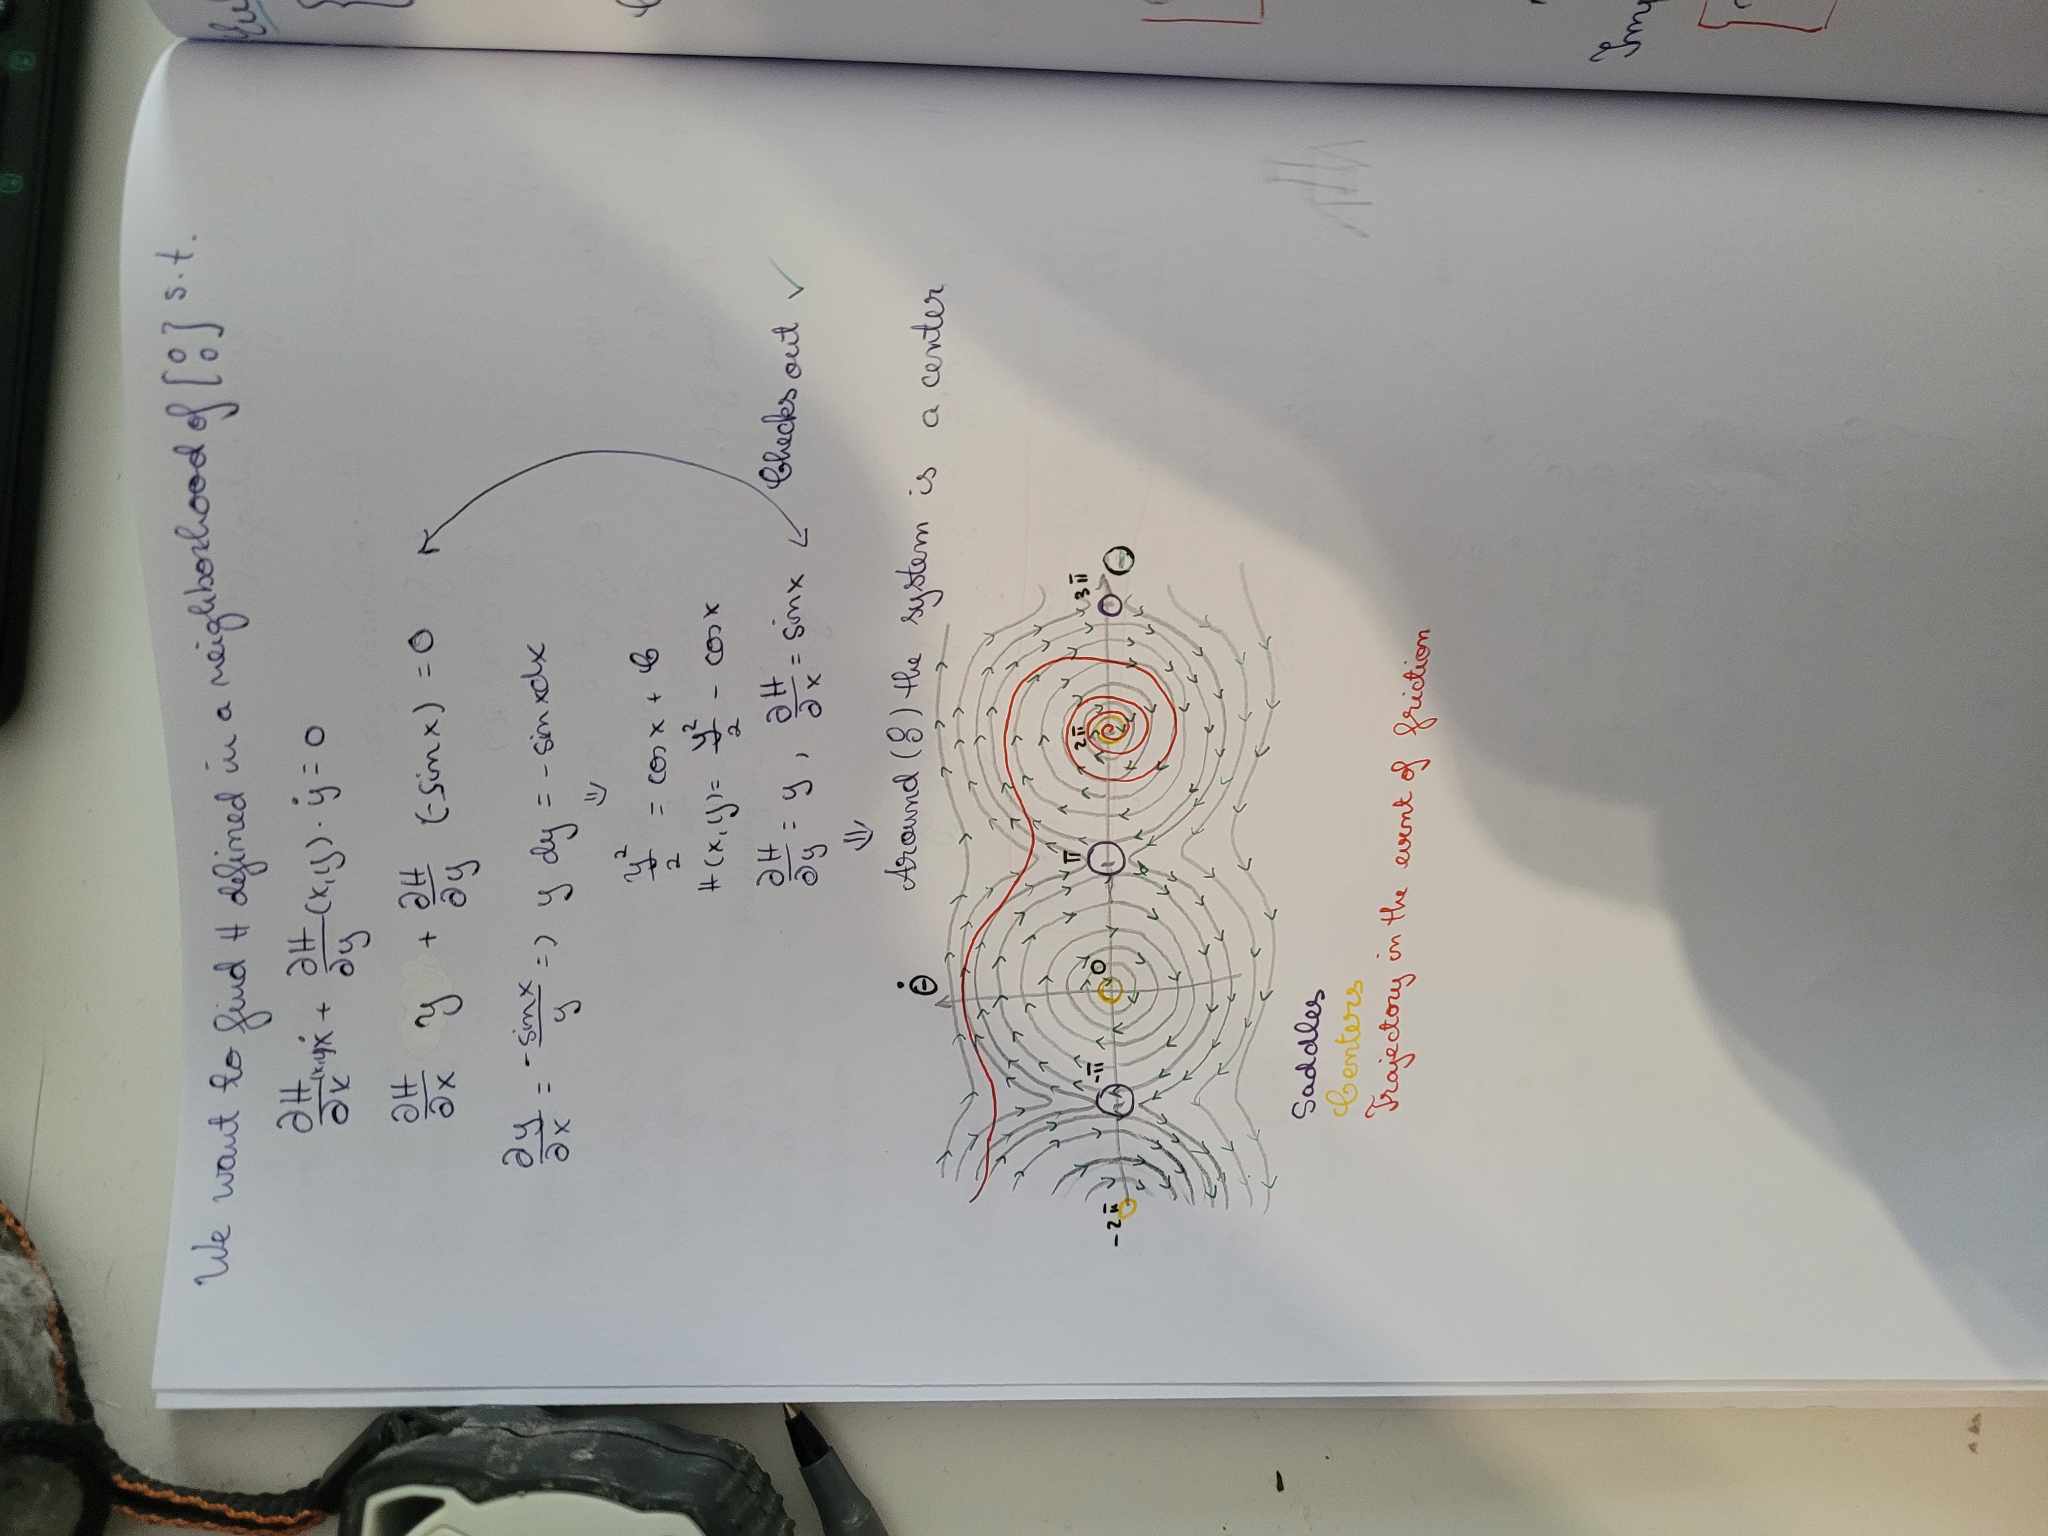 We want to find H defined in a neighborhood of [0 0] s.t.
∂H/∂x (x,y) ẋ + ∂H/∂y (x,y) · ẏ = 0
∂H/∂x y + ∂H/∂y (-sinx) = 0
∂y/∂x = - sinx/y => y dy = - sinxdx
⇓
y²/2 = cosx + C
H(x,y) = y²/2 - cosx
∂H/∂y = y, ∂H/∂x = sinx Checks out ✓
⇓
Around (0 0) the system is a center
Θ̇
-2π -π 0 π 2π 3π Θ
Saddles
Centers
Trajectory in the event of friction